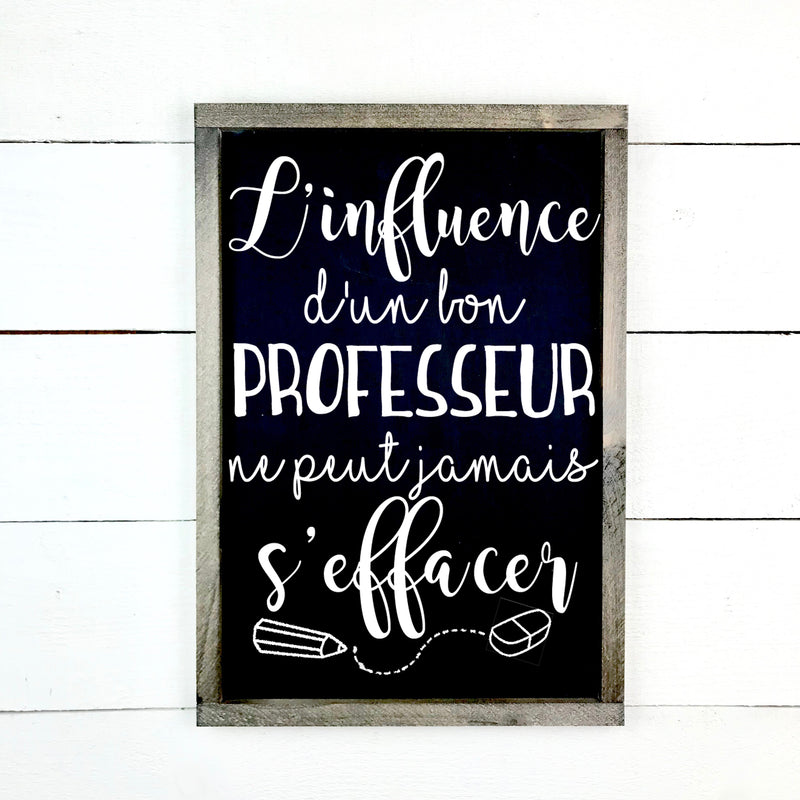 L'influence
d'un bon
PROFESSEUR
ne peut jamais
s'effacer